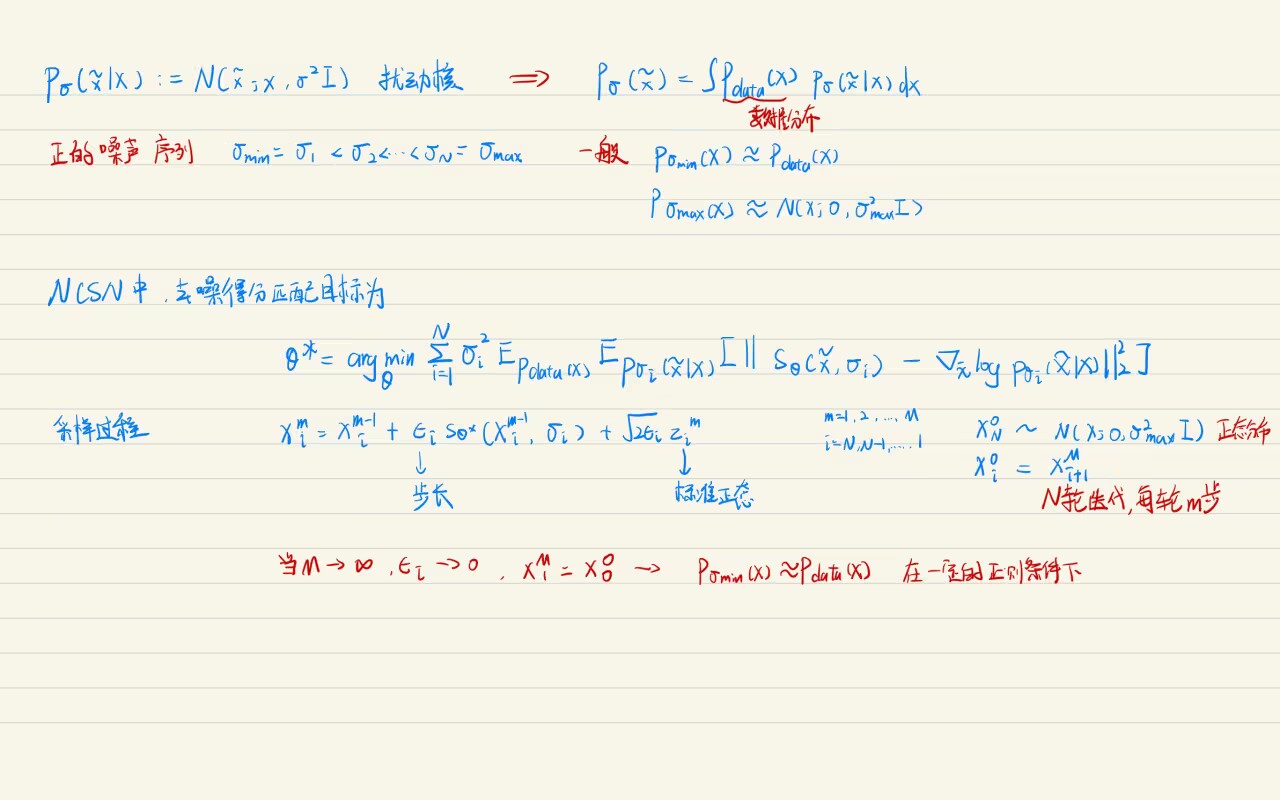 p_σ(x̃|x) := N(x̃; x, σ²I) 扰动核 ⟹ p_σ(x̃) = ∫p_data(x) p_σ(x̃|x)dx
数据分布
正的噪声序列 σ_min = σ_1 < σ_2 < ··· < σ_N = σ_max 一般 p_σmin(x) ≈ p_data(x)
p_σmax(x) ≈ N(x; 0, σ²_max I)
NCSN中,去噪得分匹配目标为
θ* = arg min_θ Σ_{i=1}^{N} σ_i² E_{p_data(x)} E_{p_σi(x̃|x)} [‖ s_θ(x̃, σ_i) − ∇_x̃ log p_σi(x̃|x)‖²_2]
采样过程 x_i^m = x_i^{m-1} + ε_i s_θ*(x_i^{m-1}, σ_i) + √2ε_i z_i^m m=1,2,...,M x_N^0 ~ N(x; 0, σ²_max I) 正态分布
i=N,N-1,....1 x_i^0 = x_{i+1}^M
↓ 步长 ↓ 标准正态 N轮迭代,每轮m步
当M→∞, ε_i→0, x_1^M = x_0^0 → p_σmin(x) ≈ p_data(x) 在一定的正则条件下